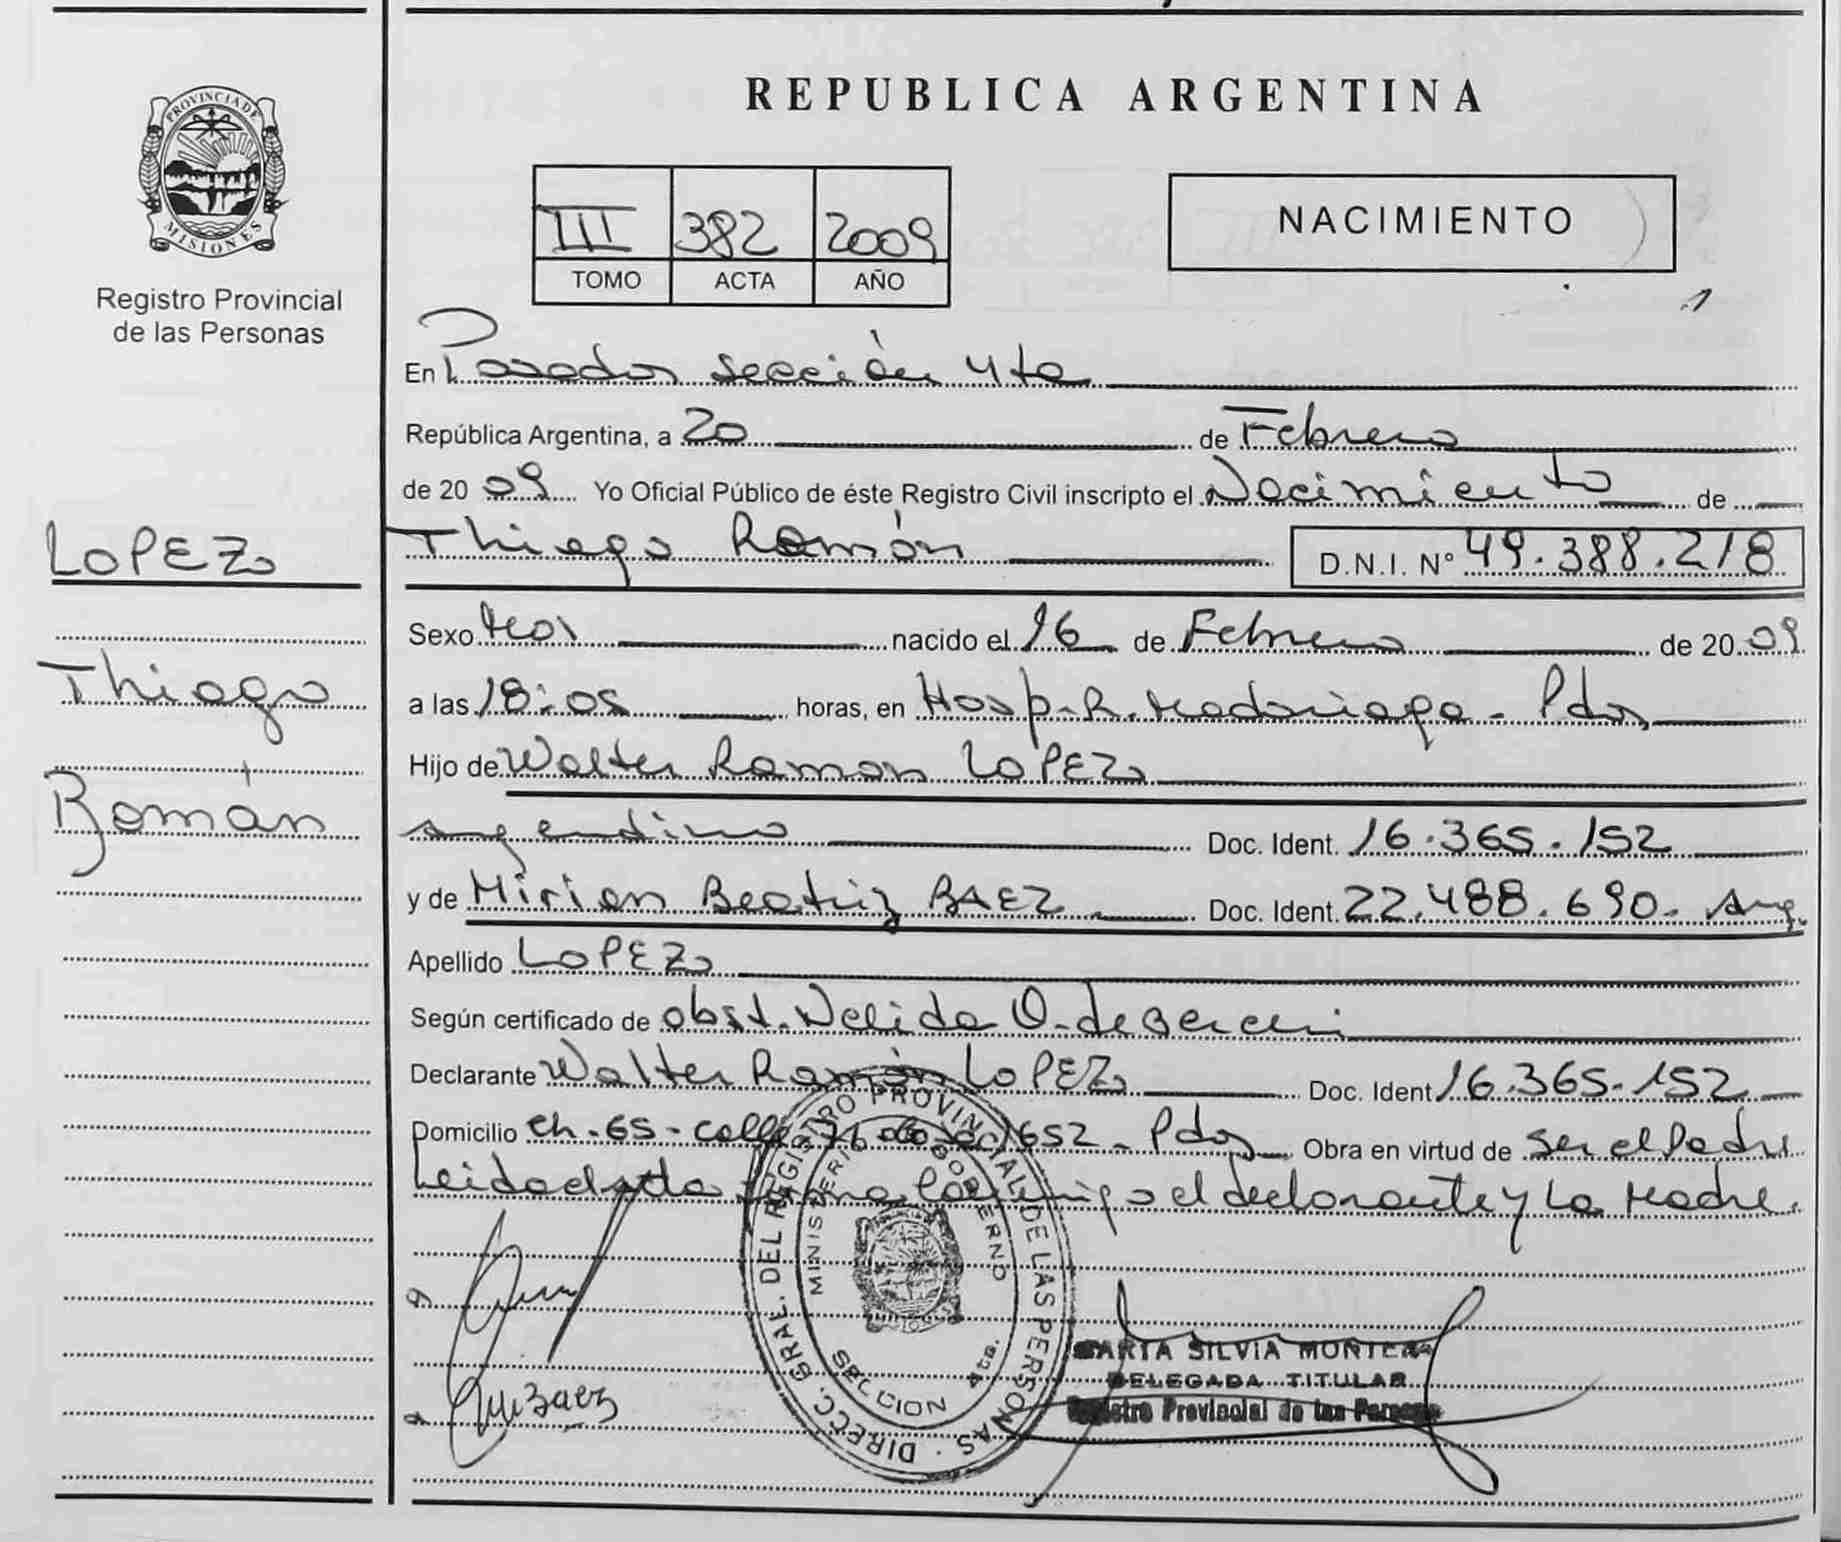 PROVINCIA DE
MISIONES
Registro Provincial
de las Personas
LOPEZ
Thiago
Román
REPUBLICA ARGENTINA
III 382 2009
TOMO ACTA AÑO
NACIMIENTO
1
En Posadas sección 4ta
República Argentina, a 20 de Febrero
de 20 09 Yo Oficial Público de éste Registro Civil inscripto el Nacimiento de
Thiago Ramón D.N.I. Nº 49.388.218
Sexo Mas nacido el 16 de Febrero de 20 09
a las 18:05 horas, en Hosp. R. Madariaga - Pdas
Hijo de Walter Ramon LOPEZ
argentino Doc. Ident. 16.365.152
y de Mirian Beatriz BAEZ Doc. Ident. 22.488.690. Arg.
Apellido LOPEZ
Según certificado de obst. Nelida O. de
Declarante Walter Ramón LOPEZ Doc. Ident 16.365.152
Domicilio Ch. 65 - calle 1652 - Pdas Obra en virtud de ser el Padre
Leida el acta firma conmigo el declarante y La Madre.
DIRECC. GRAL. DEL REGISTRO PROVINCIAL DE LAS PERSONAS
MINISTERIO DE GOBIERNO
SECCION 4ta.
Baez
SILVIA
DELEGADA TITULAR
Registro Provincial de las Personas